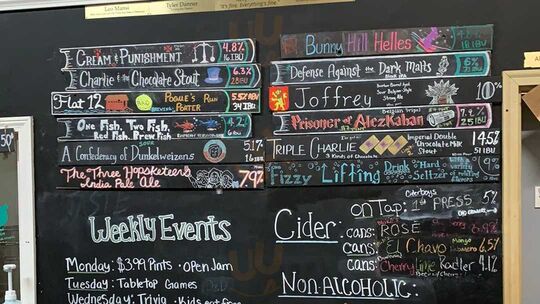 Leo Mansi
Tyler Danner
"It's fine. Everything's fine."
Cream & Punishment 4.8% 16 IBU
Charlie & the Chocolate Stout 6.3% 28 IBU
Flat 12 Pogue's Run Porter 5.5% 34 IBU
One Fish, Two Fish, Red Fish, Brew Fish Sour 4.2%
A Confederacy of Dunkelweizens 5.1% 16
The Three Hopsketeers India Pale Ale 7.9%
Weekly Events
Monday: $3.99 Pints · Open Jam
Tuesday: Tabletop Games
Wednesday: Trivia · Kids eat free
Bunny Hill Helles 18 IBU
Defense Against the Dark Malts
Joffrey 10%
Prisoner of AlezKaban Belgian Tripel 25 IBU
Triple Charlie 3 Kinds of Chocolate Imperial Double Chocolate Milk Stout 14.5% 51 IBU
Fizzy Lifting Drink Hard Seltzer
Cider: on Tap: 1st PRESS 5%
cans: ROSÉ
cans: El Chavo Mango Habanero 6.5%
cans: Cherry Radler 4.1%
Non-Alcoholic: